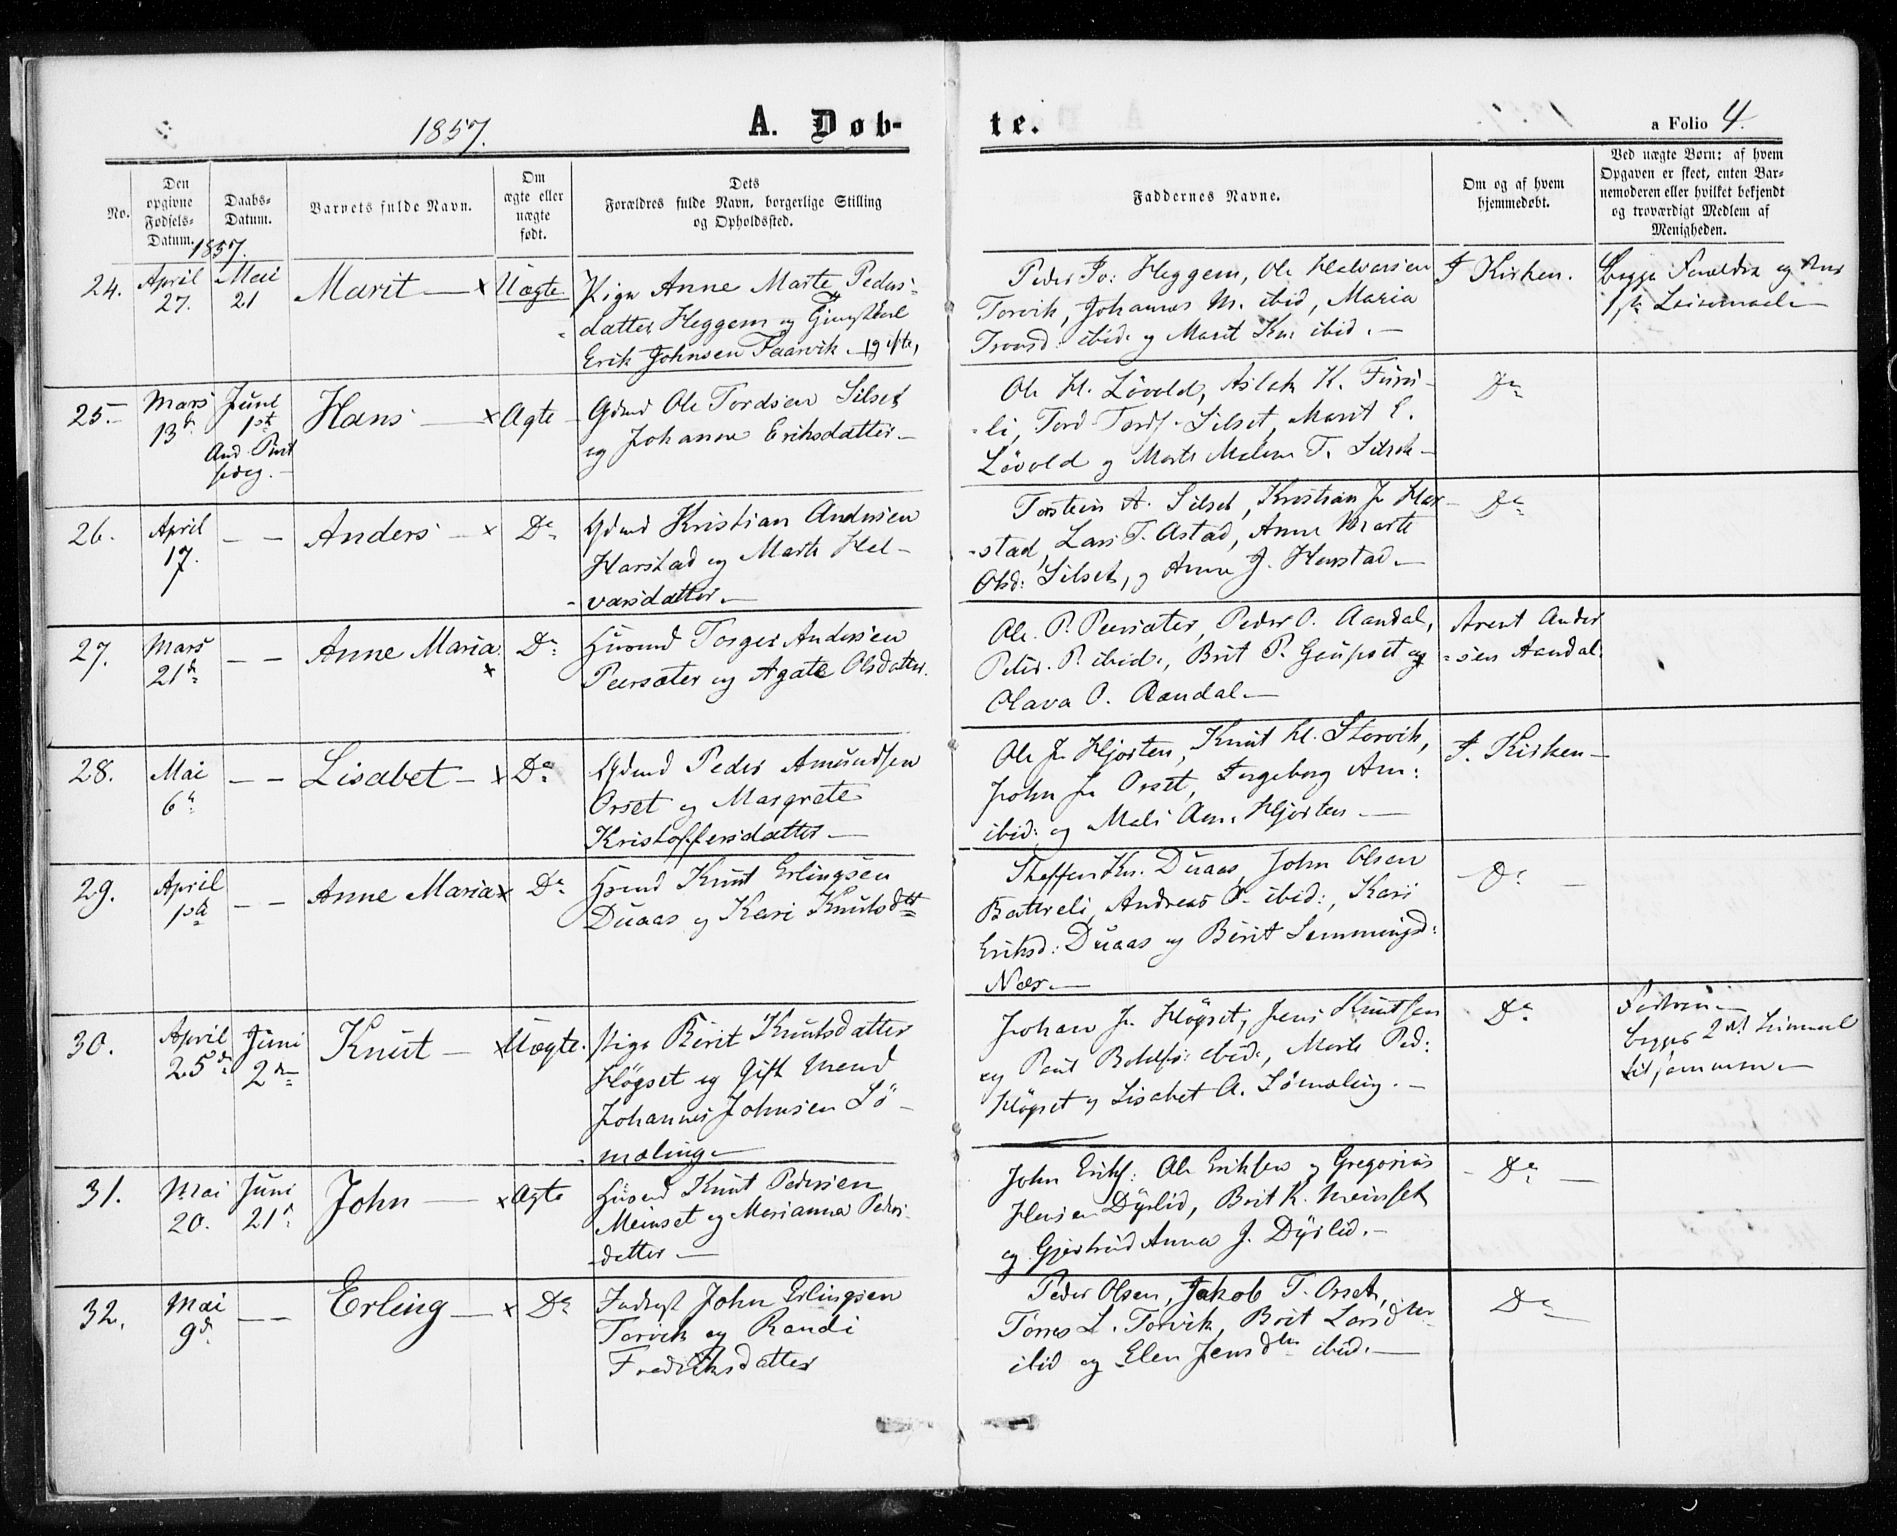 1857.
A. Døb-
te.
a Folio 4.
No.
Den
opgivne
Fødsels-
Datum.
Daabs-
Datum.
Barnets fulde Navn.
Om
ægte eller
uægte
født.
Dets
Forældres fulde Navn, borgerlige Stilling
og Opholdssted.
Faddernes Navne.
Om og af hvem
hjemmedøbt.
Ved uægte Børn: af hvem
Opgaven er skeet, enten Bar-
nemoderen eller hvilket bekjendt
og troværdigt Medlem af
Menigheden.
1857.
24.
April
27.
Mai
21
Marit — x
Uægte
Pige Anne Marte Peders-
datter Heggem og Ungkarl
Erik Johnsen Taarvik
Peder Heggem, Ole Halvorsen
Torvik, Johannes M. ibid, Maria
ibid. og Marit Kn. ibid. —
I Kirken.
begge Forældre
Leiermaal —
25.
Mars
13
Juni
1ste
Hans — x
Ægte —
Gdmd Ole Tordsen Silset
og Johanne Eriksdatter —
Ole H. Løvold, Aslak K. Furu-
li, Tord Tords. Silset, Marit E.
Løvold og Marte Malene T. Silset —
Do
26.
April
17.
— —
Anders — x
Do
Gdmd Kristian Andersen
Harstad og Marte Hal-
vorsdatter —
Torstein A. Silset, Kristian J. Har-
stad, Lars T. Astad, Anne Marte
Olsd: Silset, og Anne J. Harstad —
Do
27.
Mars
21de
— —
Anne Maria x
Do
Huusmd Torger Andersen
Peersæter og Agate Olsdatter.
Ole P. Peersæter, Peder O. Aandal,
Peter P. ibid., Brit P. Gaupset og
Olava O. Aandal —
Arent Ander
sen Aandal.
28.
Mai
6te
— —
Lisabet — x
Do
Gdmd Peder Amundsen
Orset og Margrete
Kristoffersdatter —
Ole J. Hjorten, Knut H. Storvik,
John J. Orset, Ingeborg Am:
ibid: og Mali Am. Hjorten —
I Kirken —
29.
April
1ste
— —
Anne Maria x
Do
Knut Erlingsen
Duaas og Kari Knutsdtr
Steffen Kn. Duaas, John Olsen
Batveli, Andreas P. ibid:, Kari
Eriksd: Duaas og Berit Lemmingsd:
Næs —
— Do —
30.
April
25de
Juni
2den
Knut — x
Uægte.
Pige Berit Knutsdatter
Høgset og Gift Mand
Johannes Johnsen Sø-
mæling —
Johan J. Høgset, Jens Knutsen
og Peul ibid:, Marte Ped:
Høgset og Lisabet A. Sømæling. —
Do
begges 2det Leiermaal
31.
Mai
20.
Juni
21de
John — x
Ægte
Huusmd Knut Pedersen
Meinset og Marianna Peders-
datter —
John Eriks: Ole Eriksen og Gregorius
Hansen Dyrlid, Brit K. Meinset
og Gjertrud Anna J. Dyrlid. —
— Do —
32.
Mai
9de
— —
Erling — x
Do
Inderst John Erlingsen
Torvik og Randi
Frediksdatter
Peder Olsen, Jakob T. Orset,
Tørres L. Torvik, Brit Larsdtr
ibid og Elen Jensdtr ibid. —
Do